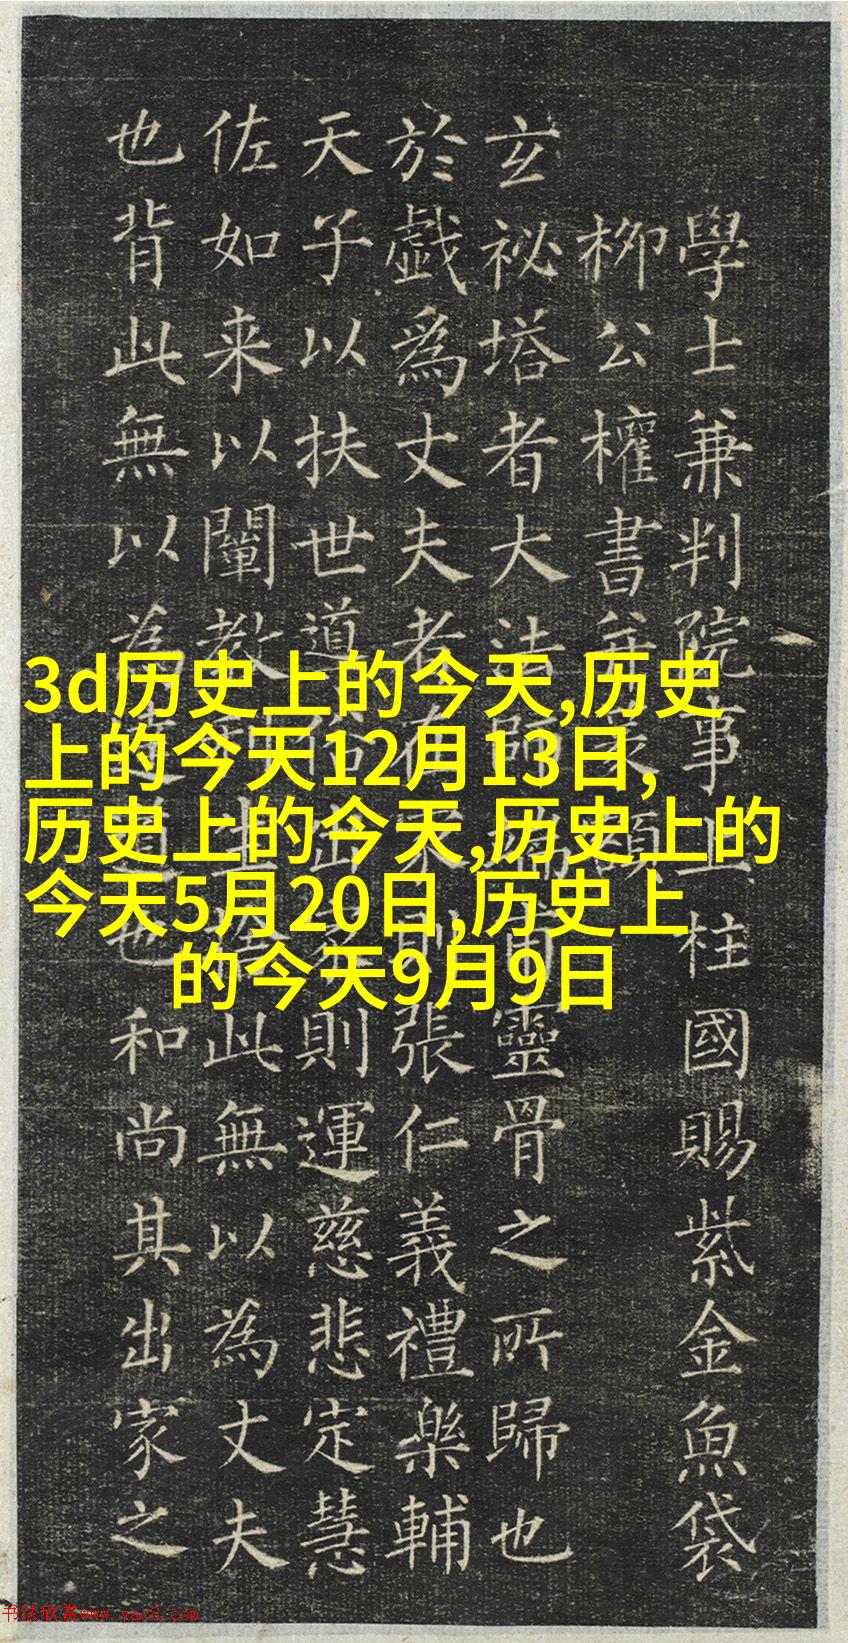 學士兼判院事上柱國賜紫金魚袋
柳公權書并篆額
玄祕塔者大法師端甫靈骨之所歸也
於戲爲丈夫者在家則張仁義禮樂輔
天子以扶世導俗出家則運慈悲定慧
佐如来以闡教利生捨此無以為丈夫
也背此無以為達道也和尚其出家之
3d历史上的今天,历史
上的今天12月13日,
历史上的今天,历史上的
今天5月20日,历史上
的今天9月9日
书法欣赏www.yac8.com